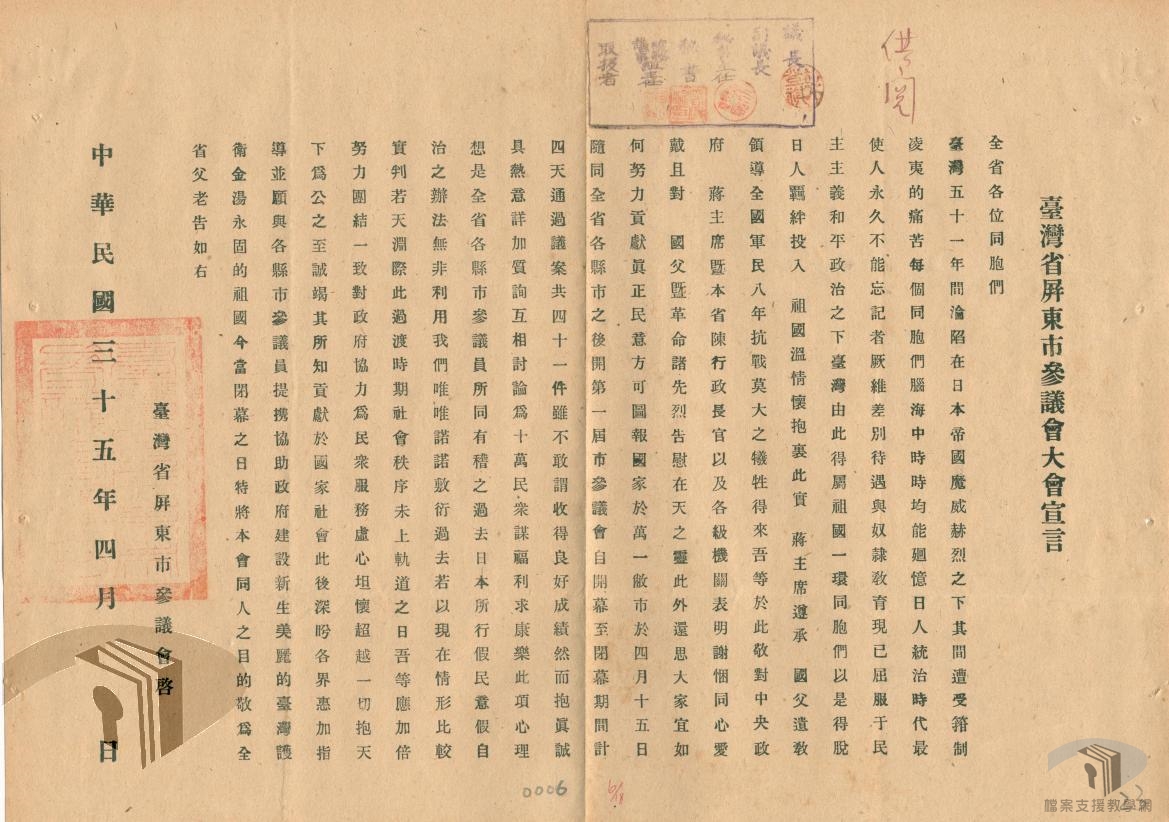 供閱
議長
副議長
秘書主任
秘書
臺灣省屏東市參議會大會宣言
全省各位同胞們
臺灣五十一年間淪陷在日本帝國魔威赫烈之下其間遭受箝制
凌夷的痛苦每個同胞們腦海中時時均能廻憶日人統治時代最
使人永久不能忘記者厥維差別待遇與奴隷敎育現已屈服于民
主主義和平政治之下臺灣由此得屬祖國一環同胞們以是得脫
日人羈絆投入 祖國溫情懷抱裏此實 蔣主席遵承 國父遺敎
領導全國軍民八年抗戰莫大之犧牲得來吾等於此敬對中央政
府 蔣主席暨本省陳行政長官以及各級機關表明謝悃同心愛
戴且對 國父暨革命諸先烈告慰在天之靈此外還思大家宜如
何努力貢獻眞正民意方可圖報國家於萬一敝市於四月十五日
隨同全省各縣市之後開第一屆市參議會自開幕至閉幕期間計
四天通過議案共四十一件雖不敢謂收得良好成績然而抱眞誠
具熱意詳加質詢互相討論爲十萬民衆謀福利求康樂此項心理
想是全省各縣市參議員所同有稽之過去日本所行假民意假自
治之辦法無非利用我們唯唯諾諾敷衍過去若以現在情形比較
實判若天淵際此過渡時期社會秩序未上軌道之日吾等應加倍
努力團結一致對政府協力爲民衆服務虛心坦懷超越一切抱天
下爲公之至誠竭其所知貢獻於國家社會此後深盼各界惠加指
導並願與各縣市參議員提携協助政府建設新生美麗的臺灣護
衛金湯永固的祖國今當閉幕之日特將本會同人之目的敬爲全
省父老告如右
臺灣省屏東市參議會啓
中華民國三十五年四月 日
0006
檔案支援教學網